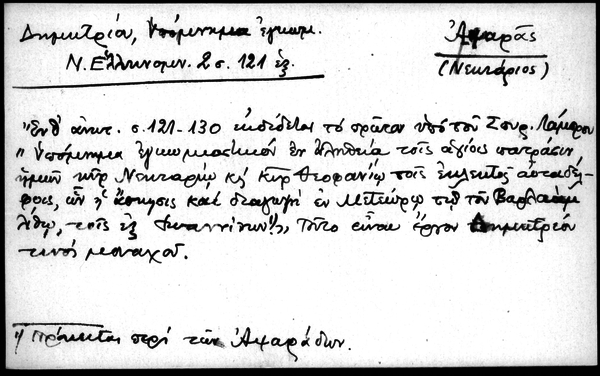 Δημητρίου, Υπόμνημα ἐγκωμ. Ἀψαρᾶς
Ν. Ἑλληνομν. 2 σ. 121 ἑξ. (Νεκτάριος)
Ἔνθ' ἀνωτ. σ. 121-130 ἐκδίδεται τό πρῶτον ὑπό τοῦ Σπυρ. Λάμπρου
"Υπόμνημα ἐγκωμιαστικόν ἐν ἀληθείᾳ τοῖς ἁγίοις πατράσιν
ἡμῶν κυρ Νεκταρίῳ κ κυρ Θεοφανίῳ τοῖς ἐκλεκτοῖς αὐταδέλ-
φοις, ὧν ἡ ἄσκησις καί διαγωγή ἐν Μετεώρῳ τῷ τοῦ Βαρλαάμ
λίθῳ, τοῖς ἐξ Ἰωαννίνων"¹), Τοῦτο εἶναι ἔργον Δημητρίου
τινός μοναχοῦ.
1) Πρόκειται περί τῶν Ἀψαράδων.